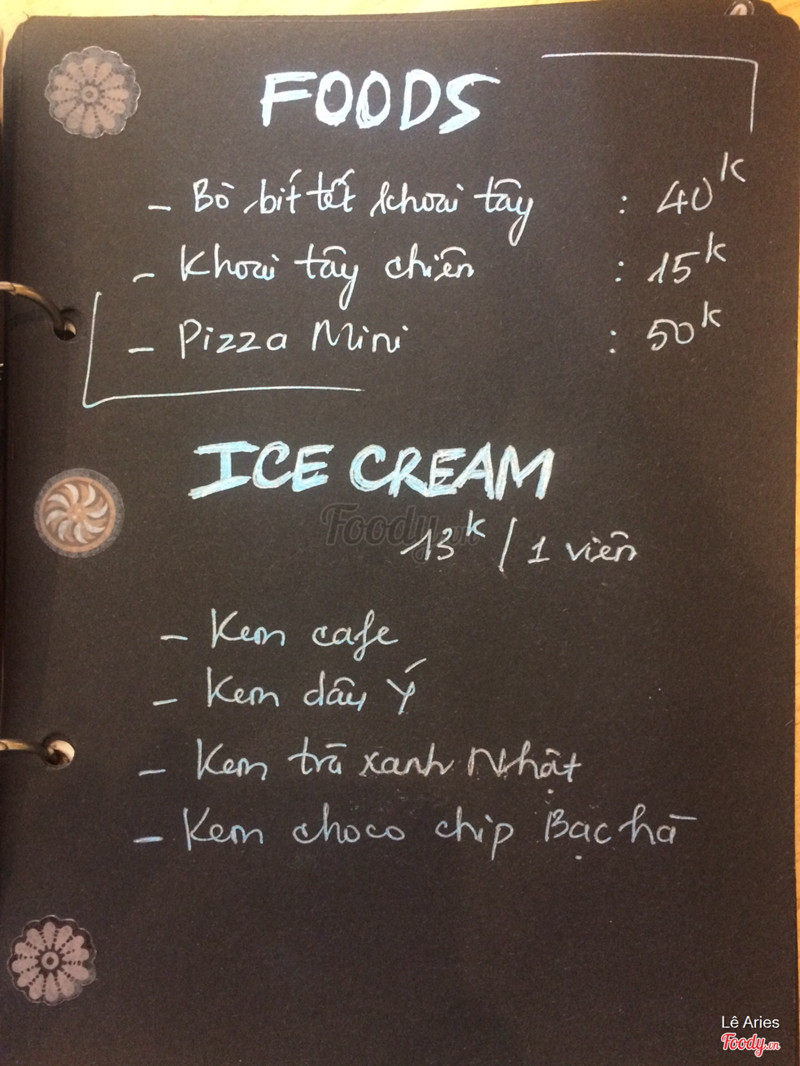 FOODS
- Bò bít tết khoai tây : 40k
- Khoai tây chiên : 15k
- Pizza Mini : 50k
ICE CREAM
Foody.vn
13k / 1 viên
- Kem cafe
- Kem dâu Ý
- Kem trà xanh Nhật
- Kem choco chip Bạc hà
Lê Aries
Foody.vn